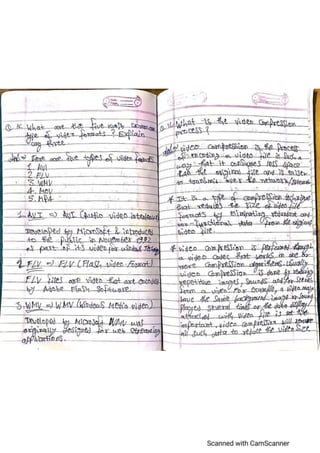 Q 15. What are the five most common
type of video formats? Explain
any three.
Ans⇒ There are five types of video formats
1. AVI
2. FLV
3. WMV
4. MOV
5. MP4
1. AVI ⇒ AVI (Audio video interleaved
Developed by Microsoft & introduced
to the public in November 1992
as part of its video for windows
2. FLV ⇒ FLV (Flash video Format)
FLV files are video that are encoded
by Adobe Flash Software.
3. WMV ⇒ WMV (Windows Media video)
Developed by Microsoft WMV was
originally designed for web streaming
applications.
What is the video compression
process?
Ans⇒ video compression is the process
of encoding a video file in such a
way that it consumes less space
than the original file and is easier
to transmit over the network/Internet
* It is a type of compression technique
that reduces the size of video file
formats by eliminating redundant and
non-functional data from the original
video file.
* Video compression is performed through
a video codec that works on one or
more compression algorithms. Usually
video compression is done by removing
repetitive images, sounds and/or scenes
from a video. For example, a video may
have the same background image or sound
played several times or the data displayed/
attached with video file is not that
important. video compression will remove
all such data to reduce the video size.
Scanned with CamScanner